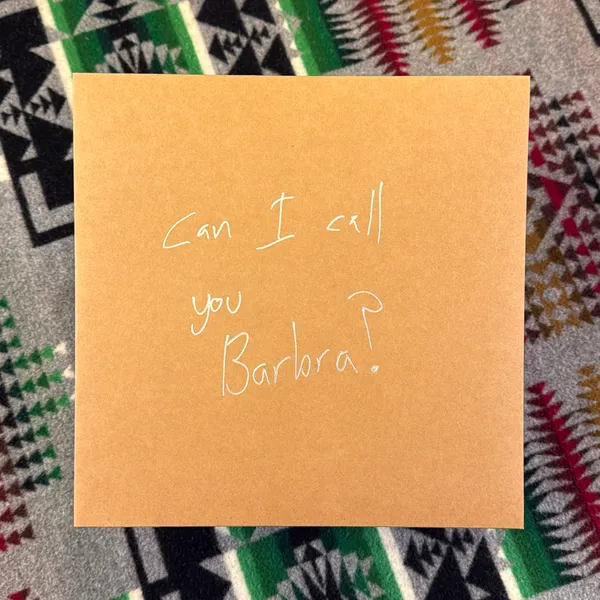 Can I call
you
Barbra?